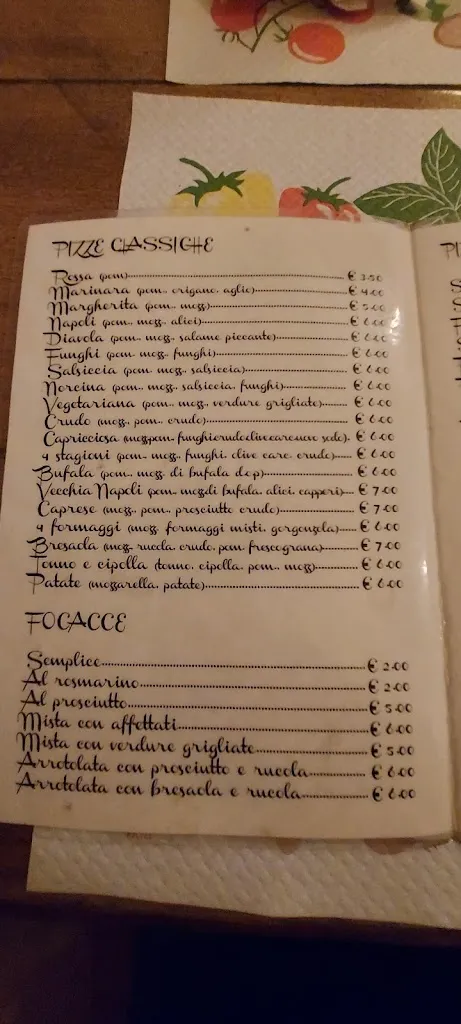 PIZZE CLASSICHE
Rossa (pom) € 3.50
Marinara (pom.. origano, aglio) € 4.00
Margherita (pom.. mozz) € 5.00
Napoli (pom.. mozz.. alici) € 6.00
Diavola (pom.. mozz.. salame piccante) € 6.00
Funghi (pom. mozz. funghi) € 6.00
Salsiccia (pom. mozz. salsiccia) € 6.00
Norcina (pom.. mozz.. salsiccia, funghi) € 6.00
Vegetariana (pom.. mozz.. verdure grigliate) € 6.00
Crudo (mozz.. pom.. crudo) € 6.00
Capricciosa (mozz.pom. funghi.crudo.olive.care.uovo sodo) € 6.00
4 stagioni (pom.. mozz.. funghi, olive care, crudo) € 6.00
Bufala (pom.. mozz. di bufala d.o.p) € 6.00
Vecchia Napoli (pom.. mozz.di bufala, alici, capperi) € 7.00
Caprese (mozz.. pom.. prosciutto crudo) € 7.00
4 formaggi (mozz. formaggi misti, gorgonzola) € 6.00
Bresaola (mozz. rucola, crudo, pom. fresco.grana) € 7.00
Tonno e cipolla (tonno, cipolla, pom.. mozz) € 6.00
Patate (mozzarella, patate) € 6.00
FOCACCE
Semplice € 2.00
Al rosmarino € 2.00
Al prosciutto € 5.00
Mista con affettati € 6.00
Mista con verdure grigliate € 5.00
Arrotolata con prosciutto e rucola € 6.00
Arrotolata con bresaola e rucola € 6.00